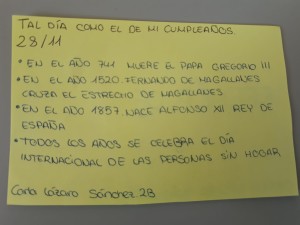 TAL DÍA COMO EL DE MI CUMPLEAÑOS
28/11
• EN EL AÑO 741 MUERE EL PAPA GREGORIO III
• EN EL AÑO 1520 FERNANDO DE MAGALLANES
CRUZA EL ESTRECHO DE MAGALLANES
• EN EL AÑO 1857 NACE ALFONSO XII REY DE
ESPAÑA
• TODOS LOS AÑOS SE CELEBRA EL DÍA
INTERNACIONAL DE LAS PERSONAS SIN HOGAR
Carla Lázaro Sánchez 2B